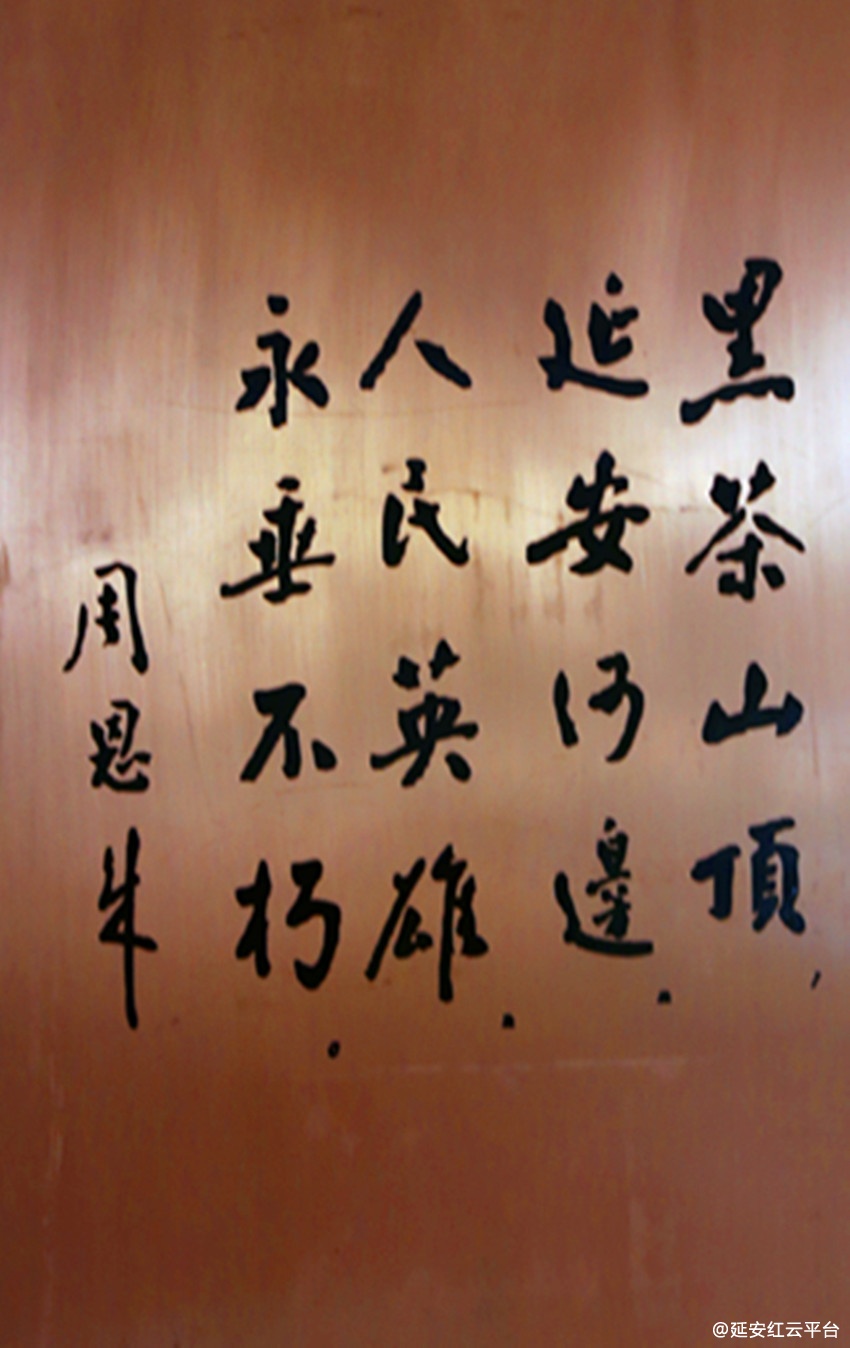 黑茶山頂，
延安河邊．
人民英雄．
永垂不朽．
周恩来
@延安红云平台